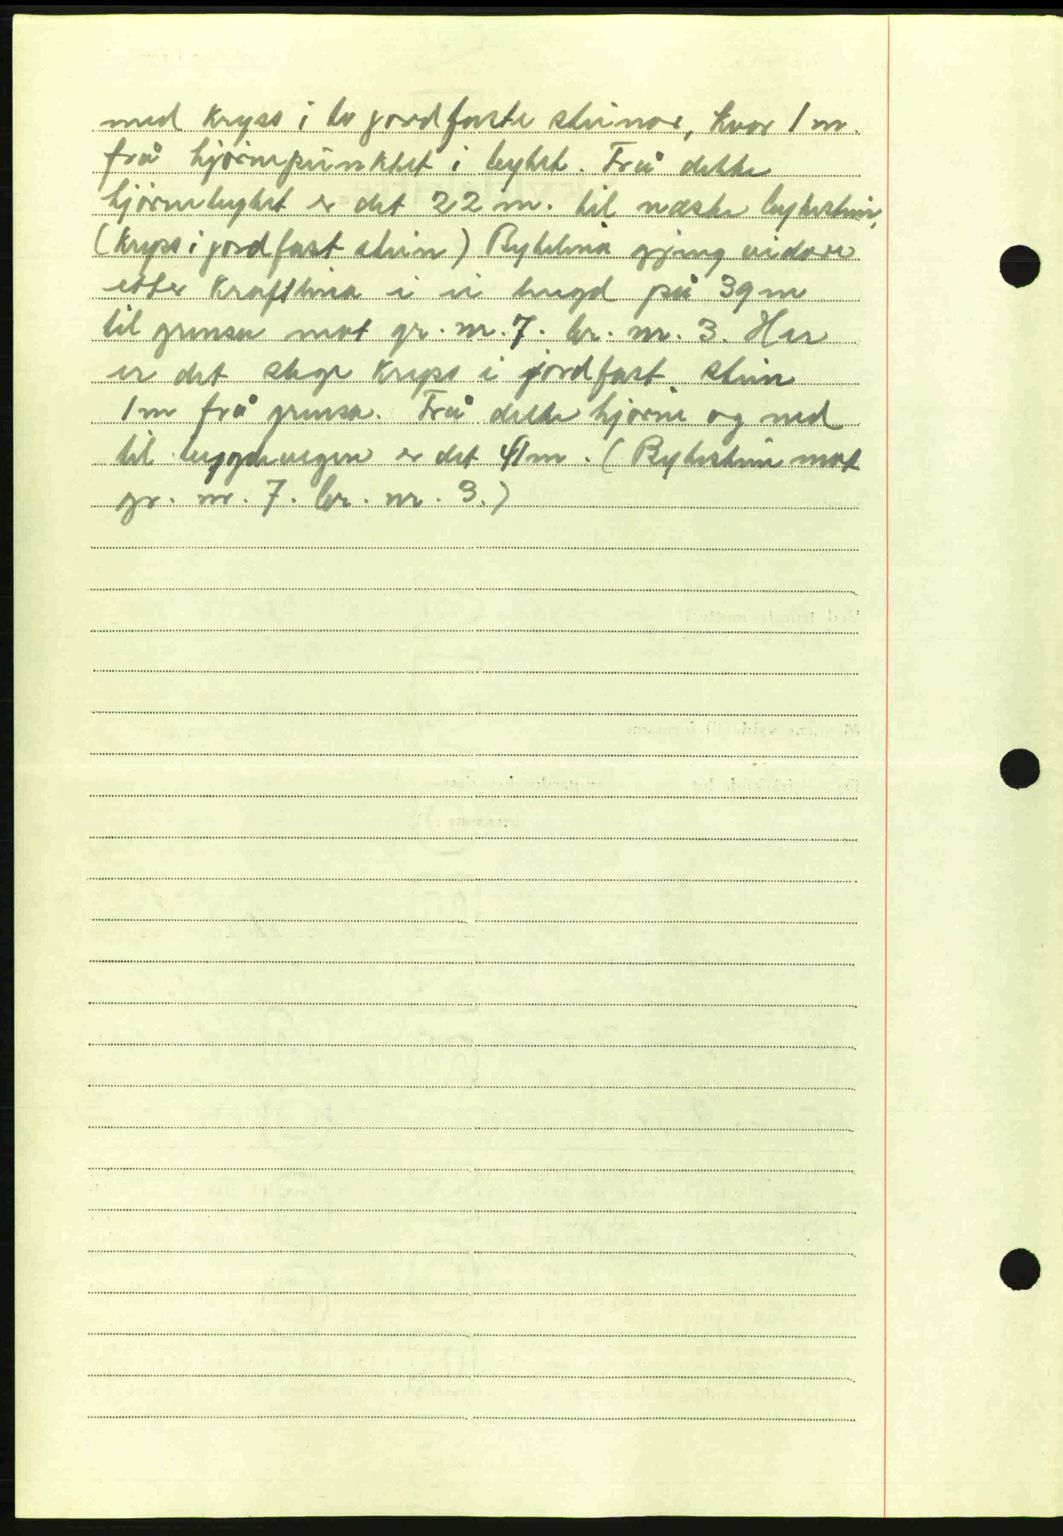 med kryss i to jordfaste steinar, kvar 1 m.
frå hjørnepunktet i bytet. Frå dette
hjørnebytet er det 22 m. til næste bytestein,
(kryss i jordfast stein) Bytelina gjeng vidare
etter kraftlina i ei lengd på 39 m
til grensa mot gr. nr. 7. br. nr. 3. Her
er det slege kryss i jordfast stein
1 m frå grensa. Frå dette hjørne og ned
til bygdevegen er det 41 m. (Bytestein mot
gr. nr. 7. br. nr. 3.)